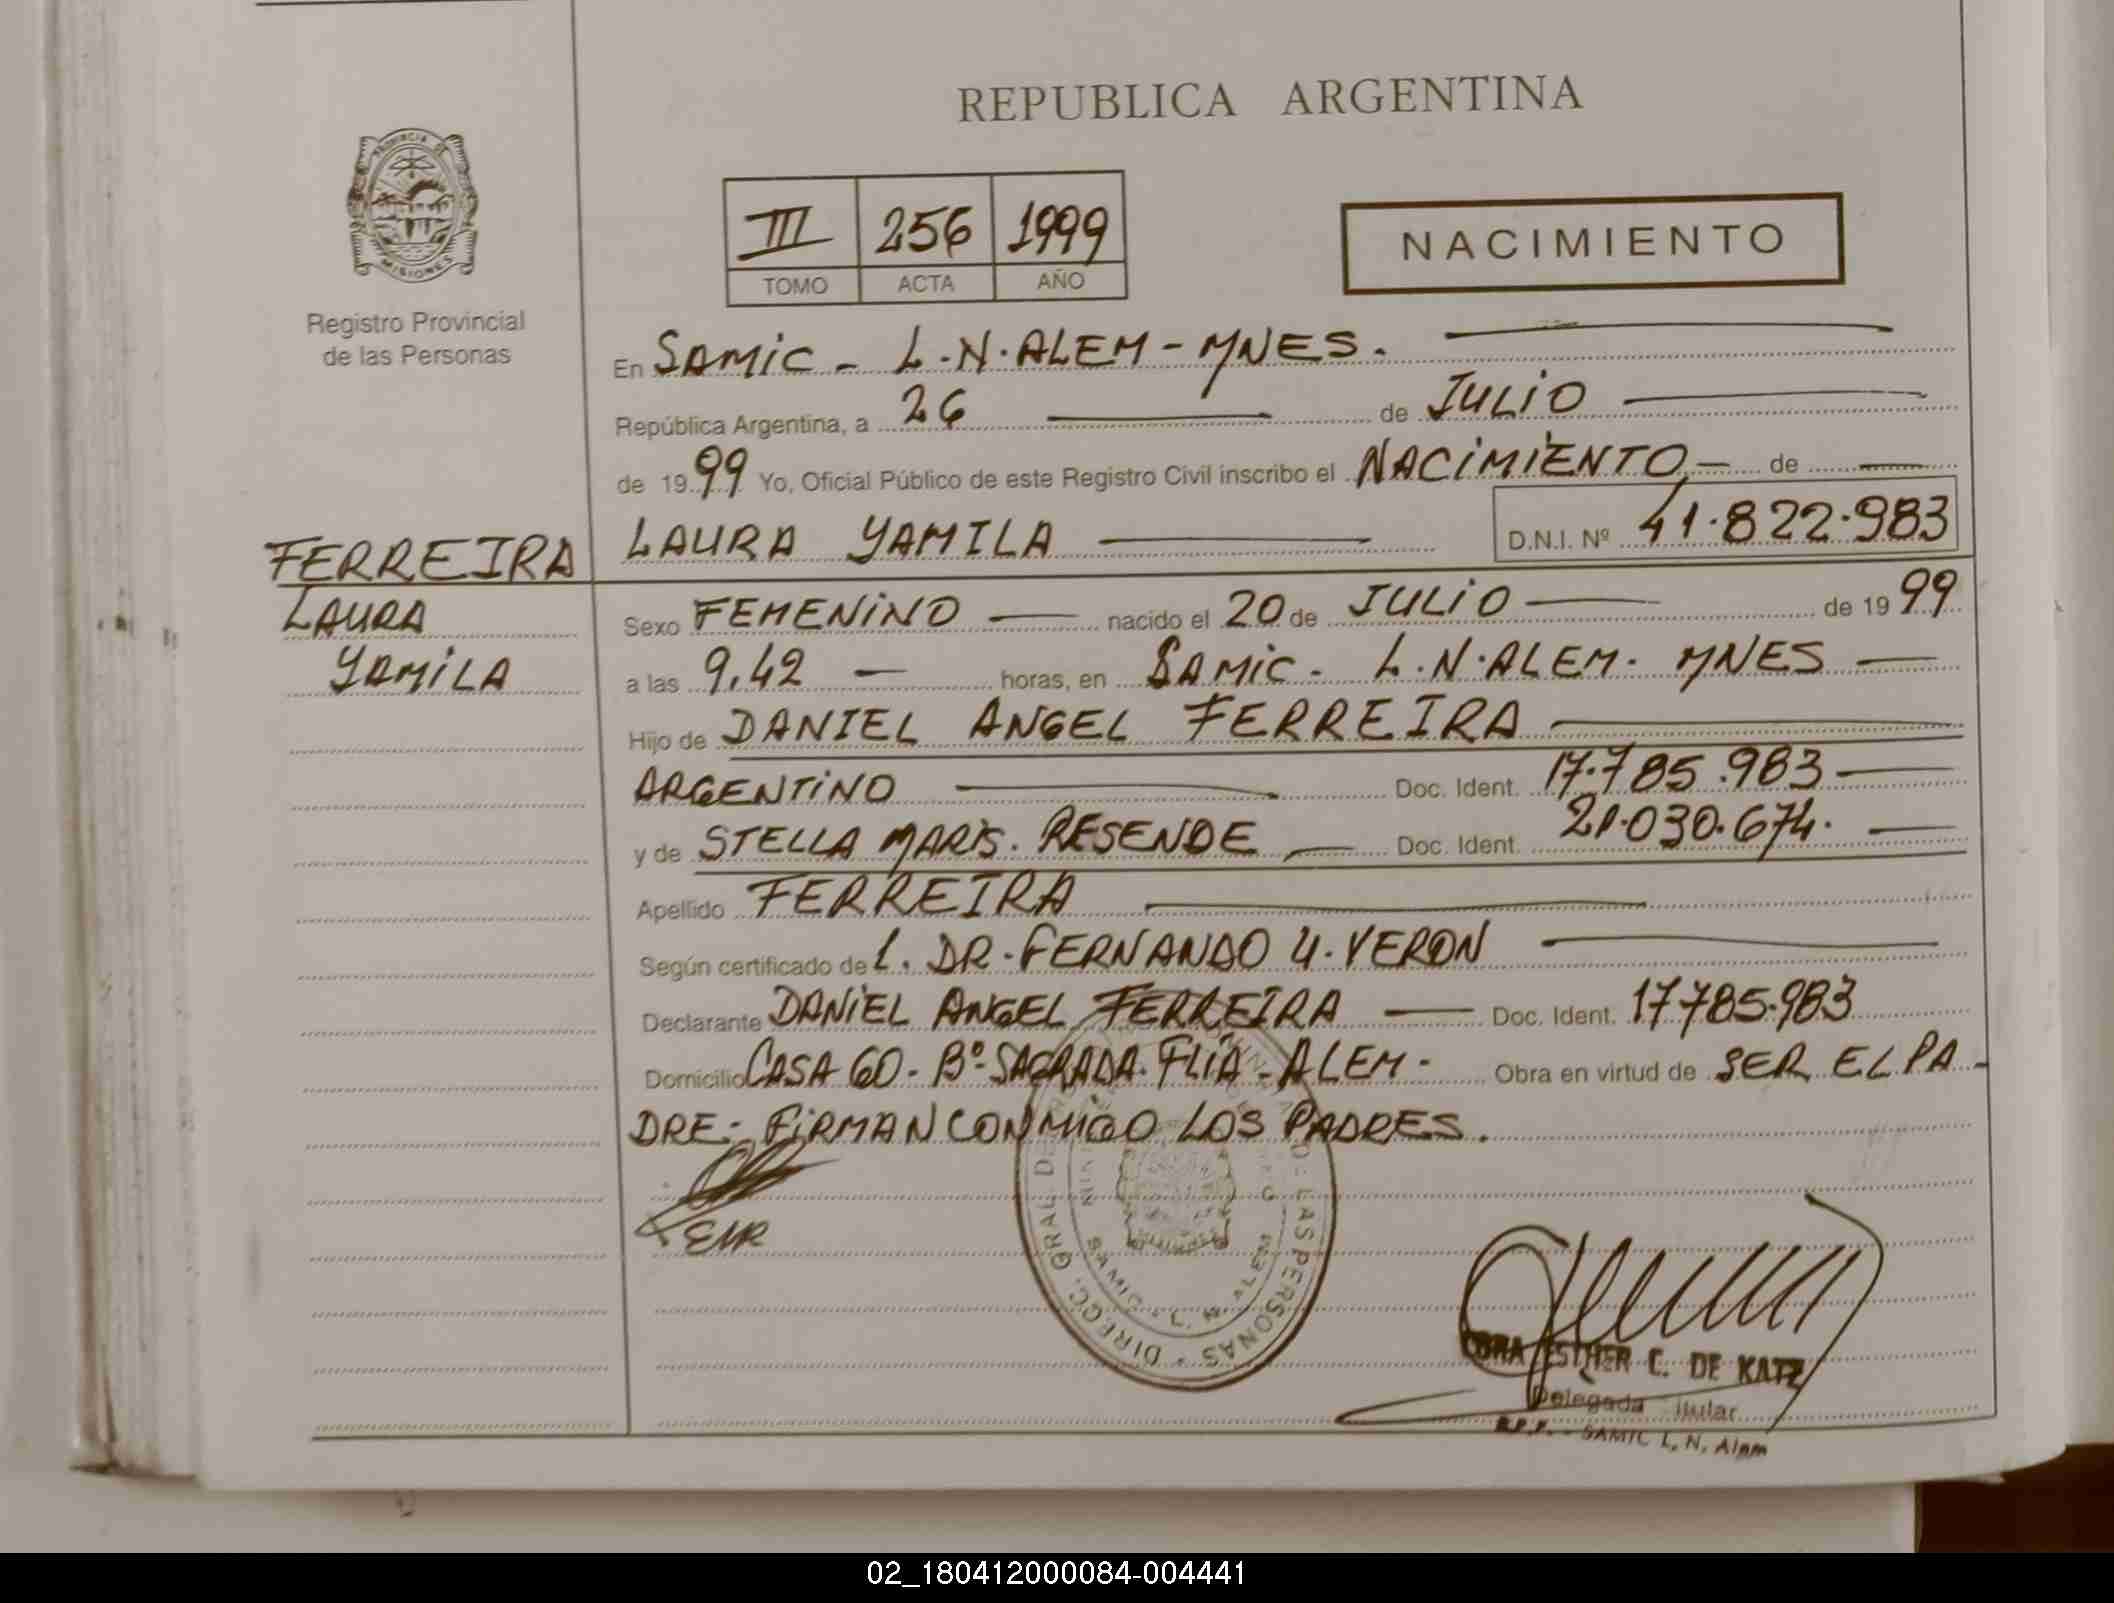 REPUBLICA ARGENTINA
PROVINCIA DE
MISIONES
Registro Provincial
de las Personas
III 256 1999
TOMO ACTA AÑO
NACIMIENTO
En SAMIC - L.N.ALEM - MNES.
República Argentina, a 26 de JULIO
de 1999 Yo, Oficial Público de este Registro Civil inscribo el NACIMIENTO - de
LAURA YAMILA D.N.I. Nº 41.822.983
FERREIRA
LAURA
YAMILA
Sexo FEMENINO nacido el 20 de JULIO de 1999
a las 9,42 horas, en SAMIC - L.N.ALEM. MNES
Hijo de DANIEL ANGEL FERREIRA
ARGENTINO Doc. Ident. 17.785.983
y de STELLA MARIS. RESENDE Doc. Ident. 21.030.674.
Apellido FERREIRA
Según certificado de L. DR. FERNANDO U. VERON
Declarante DANIEL ANGEL FERREIRA Doc. Ident. 17785.983
Domicilio CASA 60 - Bº SAGRADA FLIA - ALEM - Obra en virtud de SER EL PA -
DRE - FIRMAN CONMIGO LOS PADRES.
DIRECC. GRAL. DE LAS PERSONAS
SAMIC - L. N. ALEM
ESTHER C. DE KATZ
Delegada Titular
R.P.P. - SAMIC L. N. Alem
02_180412000084-004441